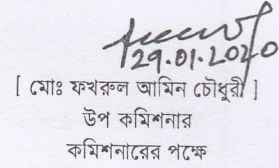 29.01.2020
[ মোঃ ফখরুল আমিন চৌধুরী ]
উপ কমিশনার
কমিশনারের পক্ষে